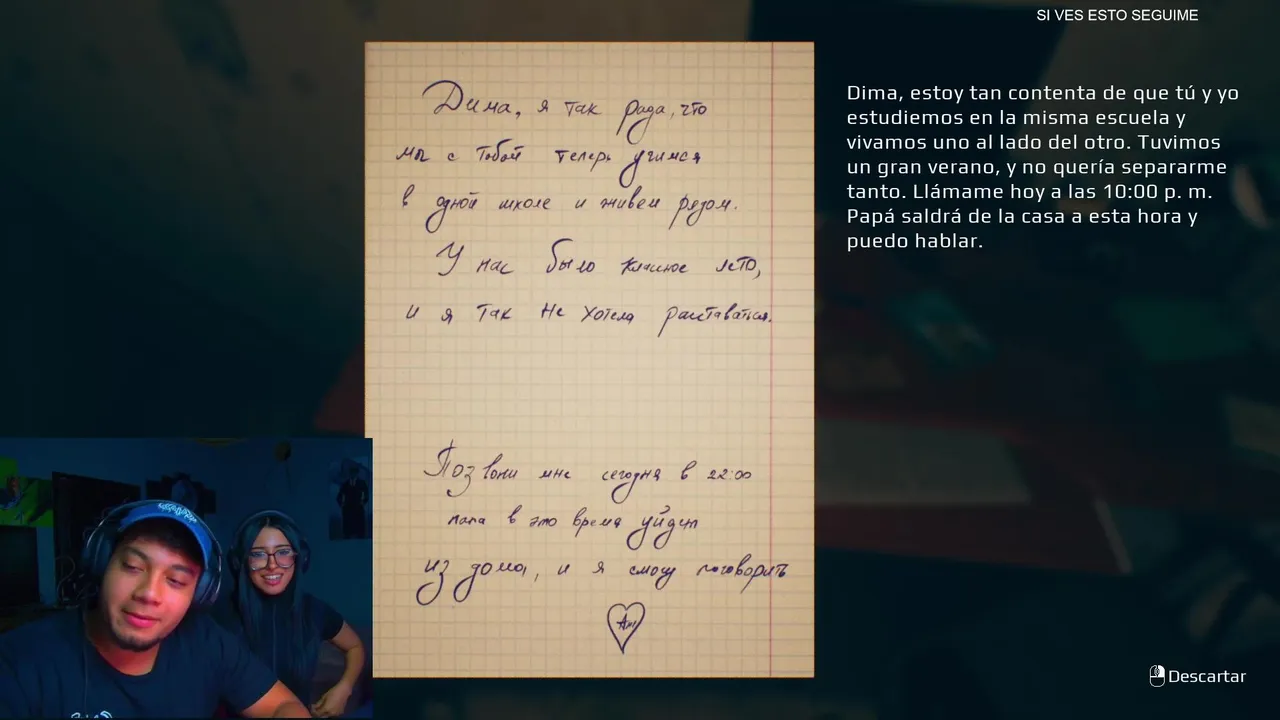 SI VES ESTO SEGUIME
Дима, я так рада, что
мы с тобой теперь учимся
в одной школе и живем рядом.
У нас было классное лето,
и я так не хотела расставаться.
Позвони мне сегодня в 22:00
папа в это время уйдет
из дома, и я смогу поговорить
Dima, estoy tan contenta de que tú y yo
estudiemos en la misma escuela y
vivamos uno al lado del otro. Tuvimos
un gran verano, y no quería separarme
tanto. Llámame hoy a las 10:00 p. m.
Papá saldrá de la casa a esta hora y
puedo hablar.
Descartar